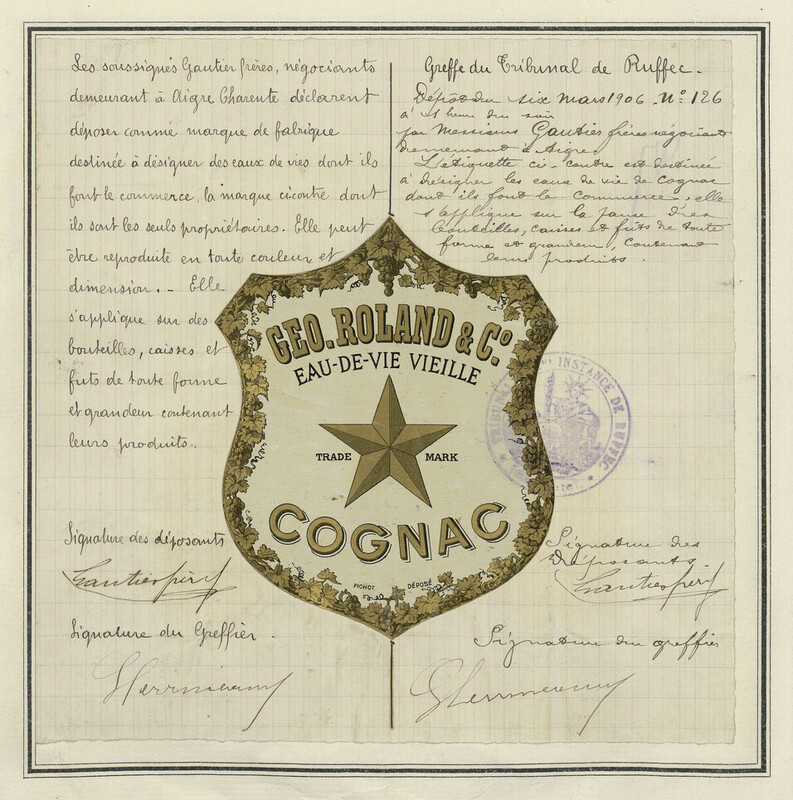 Les soussignés Gautier frères, négociants
demeurant à Aigre Charente déclarent
déposer comme marque de fabrique
destinée à désigner des eaux de vies dont ils
font le commerce, la marque ci contre dont
ils sont les seuls propriétaires. Elle peut
être reproduite en toute couleur et
dimension. - Elle
s'applique sur des
bouteilles, caisses et
futs de toute forme
et grandeur contenant
leurs produits.
Signature des déposants
Gautier frères
Signature du Greffier.
Greffe du Tribunal de Ruffec.
Dépôt du six mars 1906. N° 126
à heure du soir
par Messieurs Gautier frères négociants
demeurant à Aigre
L'etiquette ci-contre est destinée
à désigner les eaux de vie de Cognac
dont ils font le commerce; elle
s'applique sur la panse des
bouteilles, caisses et futs de toute
forme et grandeur, contenant
leurs produits.
GEO. ROLAND & Cº
EAU-DE-VIE VIEILLE
TRADE MARK
COGNAC
PICHOT DÉPOSÉ
INSTANCE DE RUFFEC
Signature des
Déposants.
Gautier frères
Signature du greffier